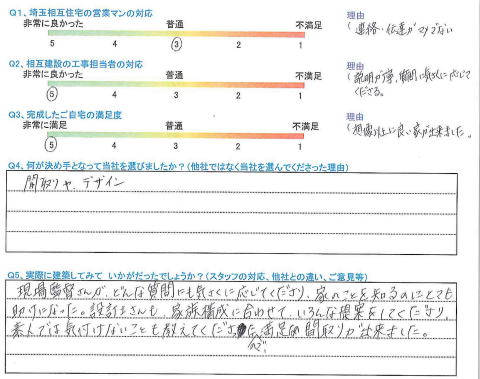 Q1、埼玉相互住宅の営業マンの対応
非常に良かった 普通 不満足
5 4 3 2 1
理由
(連絡・伝達がマメでない
Q2、相互建設の工事担当者の対応
非常に良かった 普通 不満足
5 4 3 2 1
理由
(説明が丁寧、質問に気さくに応じて
くださる。
Q3、完成したご自宅の満足度
非常に満足 普通 不満足
5 4 3 2 1
理由
(想像以上に良い家が出来ました。
Q4、何が決め手となって当社を選びましたか?(他社ではなく当社を選んでくださった理由)
間取りや、デザイン
Q5、実際に建築してみて いかがだったでしょうか?(スタッフの対応、他社との違い、ご意見等)
現場監督さんが、どんな質問にも気さくに応じてくださり、家のことを知るのにとても
助けになった。設計士さんも、家族構成に合わせて、いろんな提案をしてくださり、
素人では気付けないことも教えてくださ
んで
満足の間取りが出来ました。